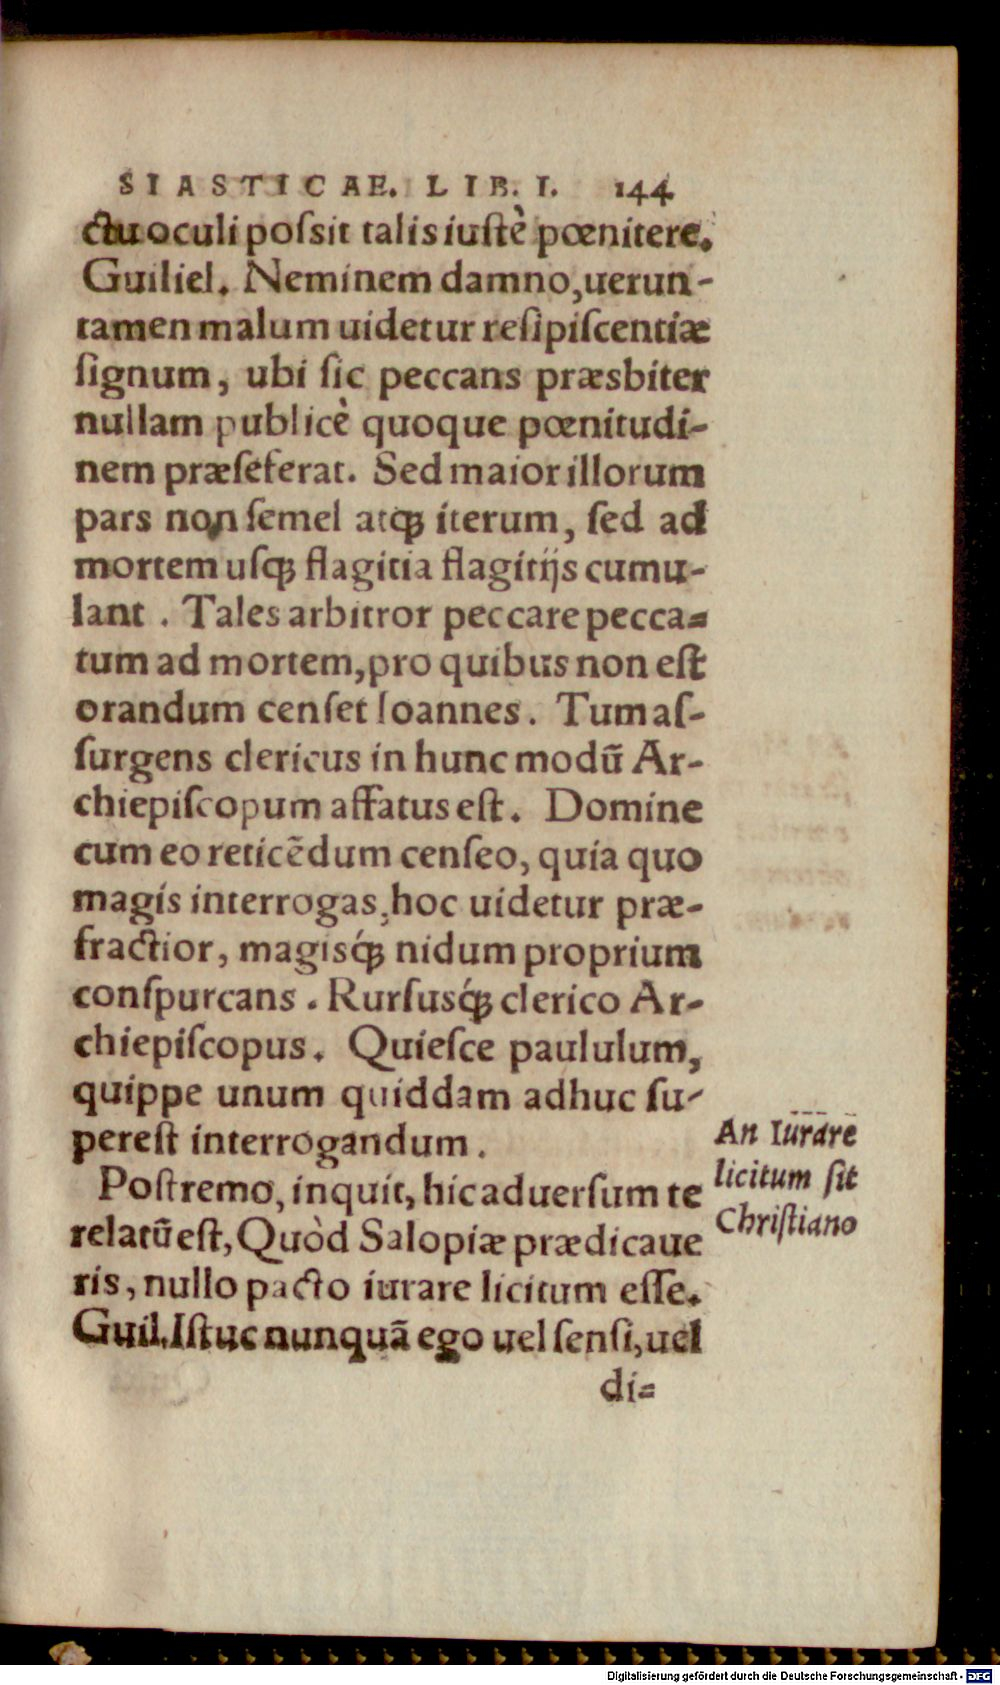 SIASTICAE. LIB. I. 144
ctu oculi poſsit talis iuſtè pœnitere.
Guiliel. Neminem damno, uerun-
tamen malum uidetur reſipiſcentiæ
ſignum, ubi ſic peccans præsbiter
nullam publicè quoque pœnitudi-
nem præſeferat. Sed maior illorum
pars non ſemel atqꝫ iterum, ſed ad
mortem uſqꝫ flagitia flagitijs cumu-
lant. Tales arbitror peccare pecca-
tum ad mortem, pro quibus non eſt
orandum cenſet Ioannes. Tum aſ-
ſurgens clericus in hunc modũ Ar-
chiepiſcopum affatus eſt. Domine
cum eo reticẽdum cenſeo, quia quo
magis interrogas, hoc uidetur præ-
fractior, magisq́ꝫ nidum proprium
conſpurcans. Rurſusq́ꝫ clerico Ar-
chiepiſcopus. Quieſce paululum,
quippe unum quiddam adhuc ſu-
pereſt interrogandum.
Poſtremo, inquit, hic aduerſum te
relatũ eſt, Quòd Salopiæ prædicaue
ris, nullo pacto iurare licitum eſſe.
Guil. Iſtuc nunquã ego uel ſenſi, uel
di-
An Iurare
licitum ſit
Chriſtiano
Digitalisierung gefördert durch die Deutsche Forschungsgemeinschaft - DFG